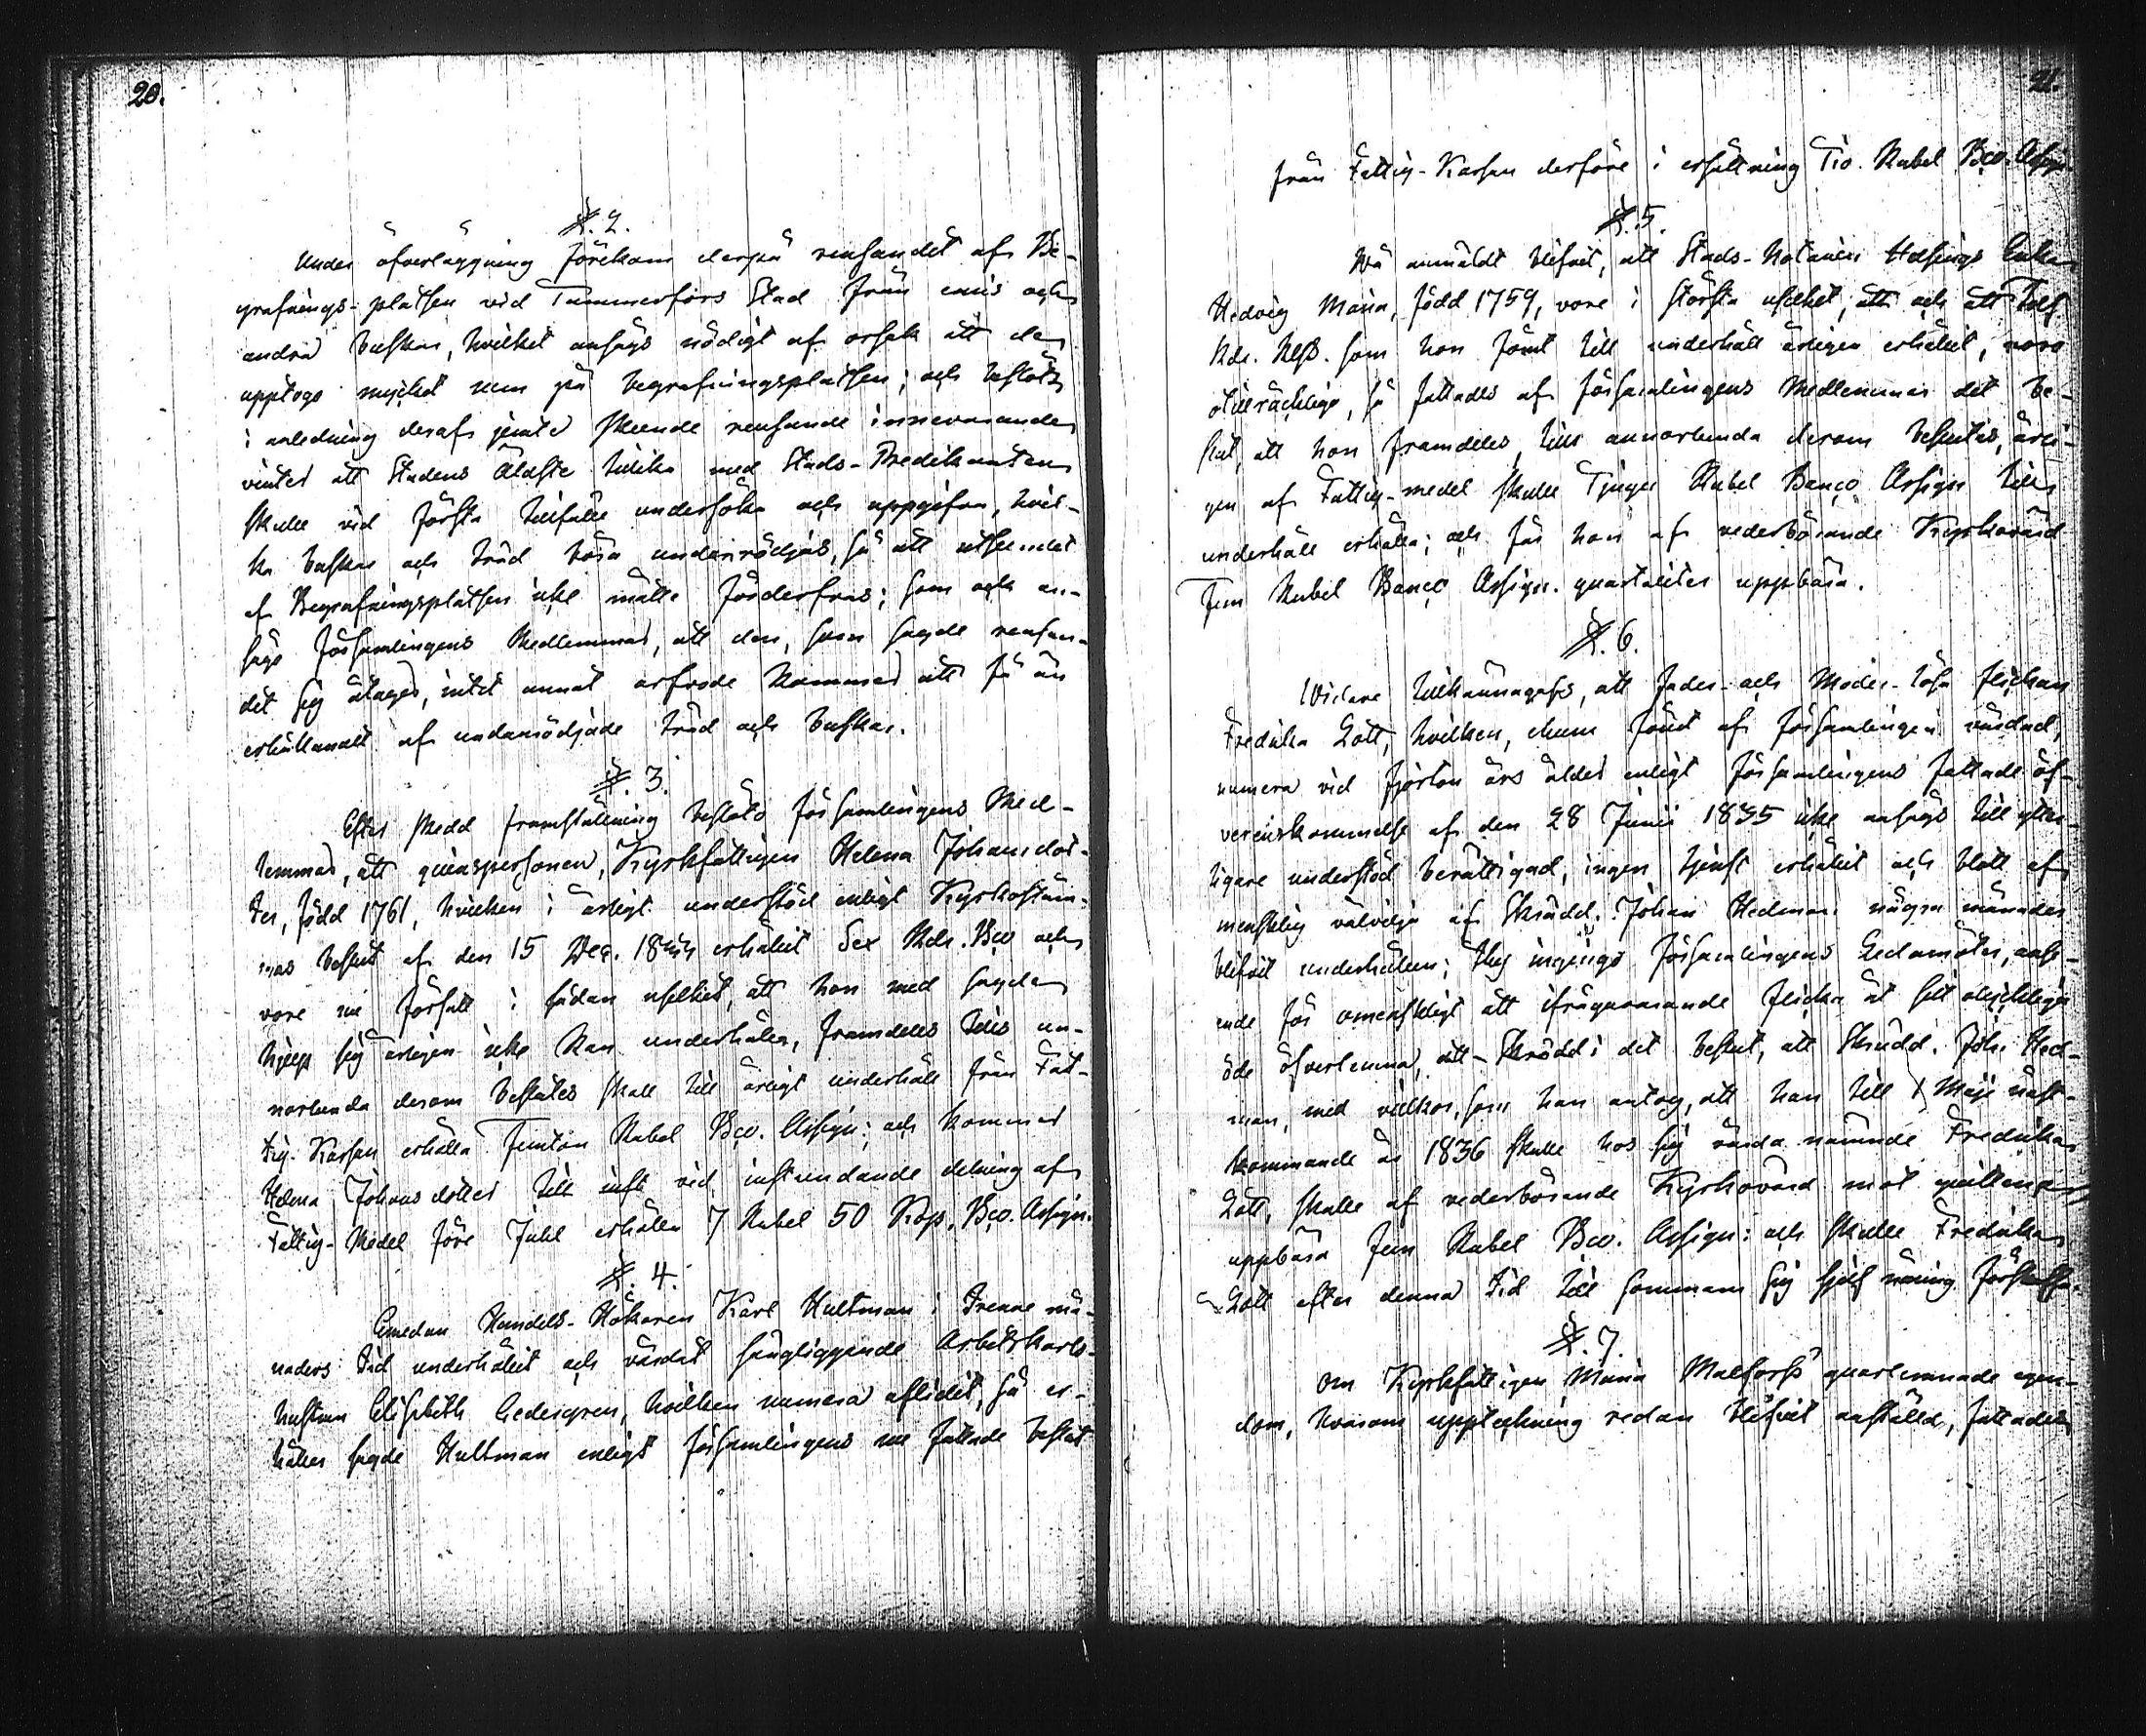 20.
§. 2.
Under öfverläggning förekom derpå rensandet af Be-
grafnings-platsen vid Tammerfors Stad från enis och
andra buskar, hvilket ansågs nödigt af orsak att de
upptogo mycket rum på begrafningsplatsen; och beslöts
i anledning deraf jemte skeende rensande innevarande
vinter att Stadens Äldste tillika med Stads-Predikanten
skulle vid första tillfälle undersöka och uppgifva, hvil-
ka buskar och träd böra undanrödjas, så att utseendet
af Begrafningsplatsen icke måtte förderfvas; som ock an-
sågo Församlingens Medlemmar, att den, som sagde rensan-
det sig åtager, intet annat arfvode kommer att få än
erhållandet af undanrödjade träd och buskar.
§. 3.
Efter skedd framställning beslöto Församlingens Med-
lemmar, att qvinspersonen, Kyrkfattigen Helena Johansdot-
ter, född 1761, hvilken i årligt understöd enligt Kyrkostäm-
mas beslut af den 15 Dec. erhållit Sex Rdr. Bco och
vore nu försatt i sådan uselhet, att hon med sagde
hjelp sig årligen icke kan underhålla, framdeles tills an-
norlunda derom beslutes skall till årligt underhåll från Fat-
tig-Kassan erhålla Femton Rubel Bco. Assign: och kommer
Helena Johansdotter till vid instundande delning af
Fattig-Medel före Juhl erhålla 7 Rubel 50 Kop. Bco. Assign.
§. 4.
Emedan Handels-Hökaren Karl Hultman i trenne må-
naders tid underhållit och vårdat sängliggande Arbetskarls-
hustrun Elisabeth Cedergren, hvilken numera aflidit, så er-
håller sagde Hultman enligt församlingens nu fattade beslut
21.
från Fattig-Kassan derföre i ersättning Tio Rubel Bco. Assign.
§. 5.
Då anmäldt blifvit, att Stads-Notarien Helsings Enka
Hedvig Maria, född 1759, vore i största uselhet, och att Tolf
Rdr. Rgs. som hon förut till underhåll årligen erhållit, voro
otillräcklige, så fattades af Församlingens Medlemmar det be-
slut, att hon framdeles, tills annorlunda derom beslutes, årli-
gen af Fattig-medel skulle Tjugu Rubel Banco Assign till
underhåll erhålla; och får hon af vederbörande Kyrkovärd
Fem Rubel Banco Assign. quartaliter uppbära.
§. 6.
Vidare tillkännagafs, att Fader- och Moder-lösa flickan
Fredrika Gött, hvilken, ehuru förut af församlingen vårdad,
numera vid fjorton års ålder enligt församlingens fattade öf-
verenskommelse af den 28 Junii 1835 icke ansågs till ytter-
ligare understöd berättigad, ingen tjenst erhållit och blott af
mensklig välvilja af Skrädd. Johan Hedman några månader
blifvit underhållen; ingingo Församlingens Ledamöter, anse-
ende för omenskligt att ifrågavarande flicka åt sitt olyckliga
öde öfverlemna, att Skrädd: i det beslut, att Skrädd. Joh. Hed-
man, med villkor, som han antog, att han till 1 Maji näst-
kommande år 1836 skulle hos sig vårda nämnde Fredrika
Gött, skulle af vederbörande Kyrkovärd mot quittens
uppbära fem Rubel Bco. Assign: och skulle Fredrika
Gött efter denna tid till sommarn sig sjelf näring förskaffa.
§. 7.
Om Kyrkfattigen Maria Malfors's quarlemnade egen-
dom, hvarom uppteckning redan blifvit anställd, fattades